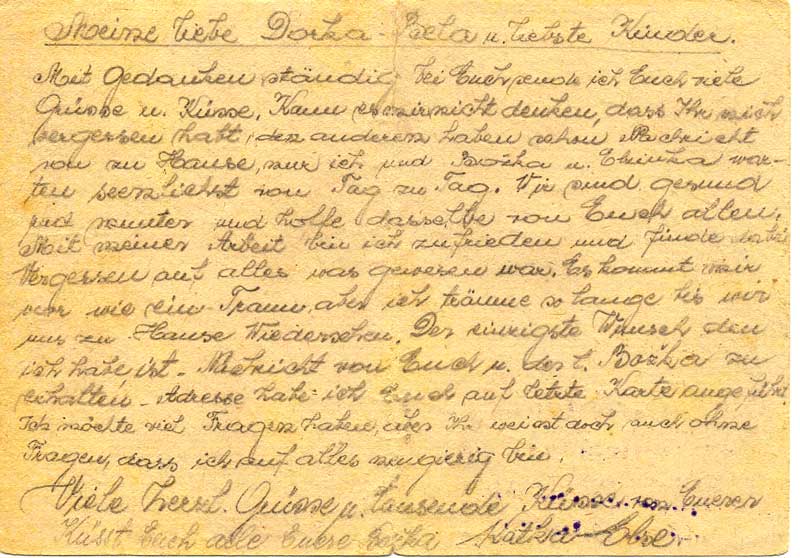 Meine liebe Dorka - Bela u. liebste Kinder.
Mit Gedanken ständig bei Euch sende ich Euch viele
Grüsse u. Küsse. Kann es mir nicht denken, dass Ihr mich
vergessen habt, den anderen haben schon Nachricht
von zu Hause, nur ich und Božka u. Elvinka war-
ten seenlichst von Tag zu Tag. Wir sind gesund
und munter und hoffe dasselbe von Euch allen.
Mit meiner Arbeit bin ich zufrieden und finde dabei
Vergessen auf alles was gewesen war. Es kommt mir
vor wie ein Traum, aber ich träume so lange bis wir
uns zu Hause Wiedersehen. Der einzigste Wunsch den
ich habe ist - Nachricht von Euch u. der l. Božka zu
erhalten - Adresse habe ich Euch auf letzte Karte angeführt.
Ich möchte viel Fragen haben, aber Ihr weisst doch auch ohne
Fragen, dass ich auf alles neugierig bin.
Viele herzl. Grüsse u. tausende Küsse von Eueren
Küsst Euch alle Euere Božka